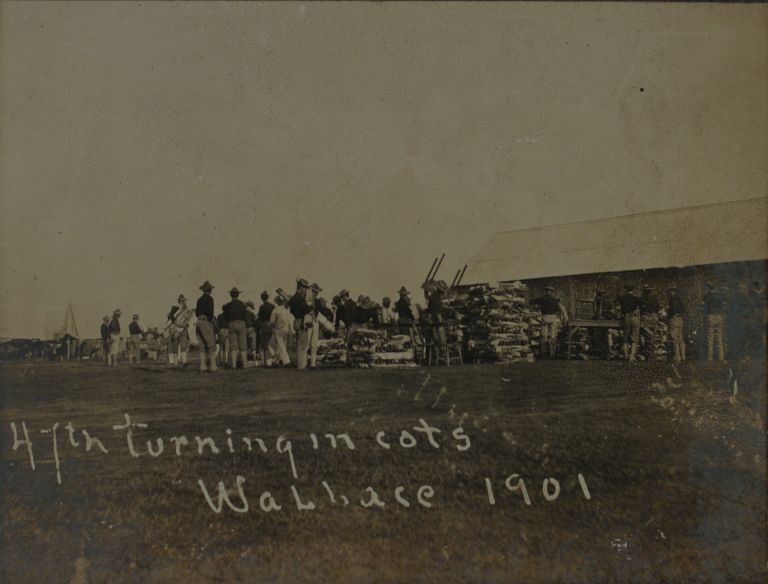 47th turning in cots
Wallace 1901